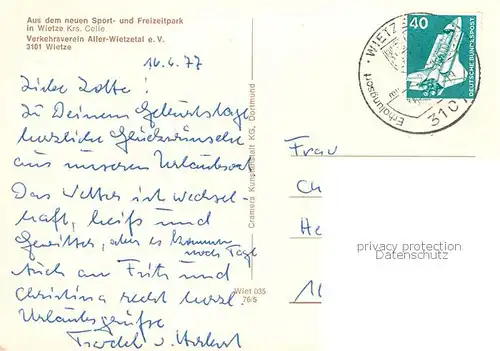 Aus dem neuen Sport- und Freizeitpark
in Wietze Krs. Celle
Verkehrsverein Aller-Wietzetal e. V.
3101 Wietze
14.6.77
Liebe Lotte!
Zu Deinem Geburtstage
herzliche Glückwünsche
aus unserem Urlaubsort
Das Wetter ist wechsel-
haft, heiß und
Gewitter, aber es kommen
noch Tage
Auch an Fritz und
Christina recht herzl.
Urlaubsgrüße
u. Herbert
Cramers Kunstanstalt KG, Dortmund
Wiet 035
76/5
40
DEUTSCHE BUNDESPOST
WIETZ
Erholungsort
3101
Frau
Ch
He
privacy protection
Datenschutz